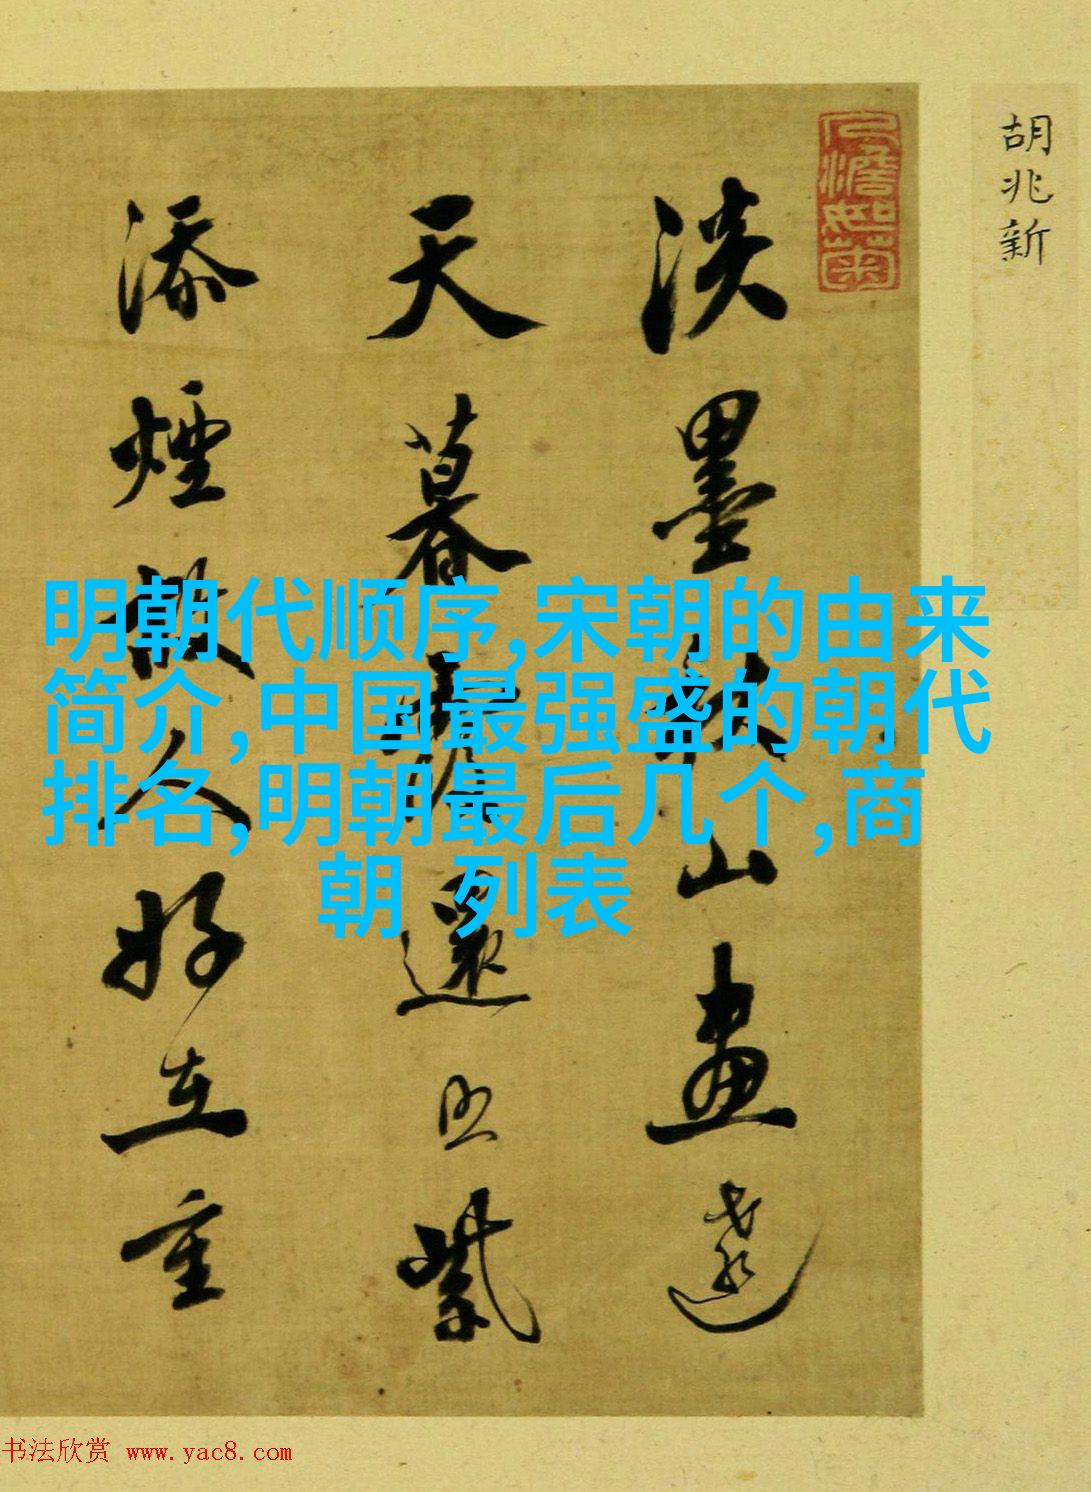 胡兆新
淡墨秋山畫遠
天暮霞還照紫
添煙故人好在重
明朝代顺序,宋朝的由来
简介,中国最强盛的朝代
排名,明朝最后几个,商
朝 列表
书法欣赏 www.yac8.com